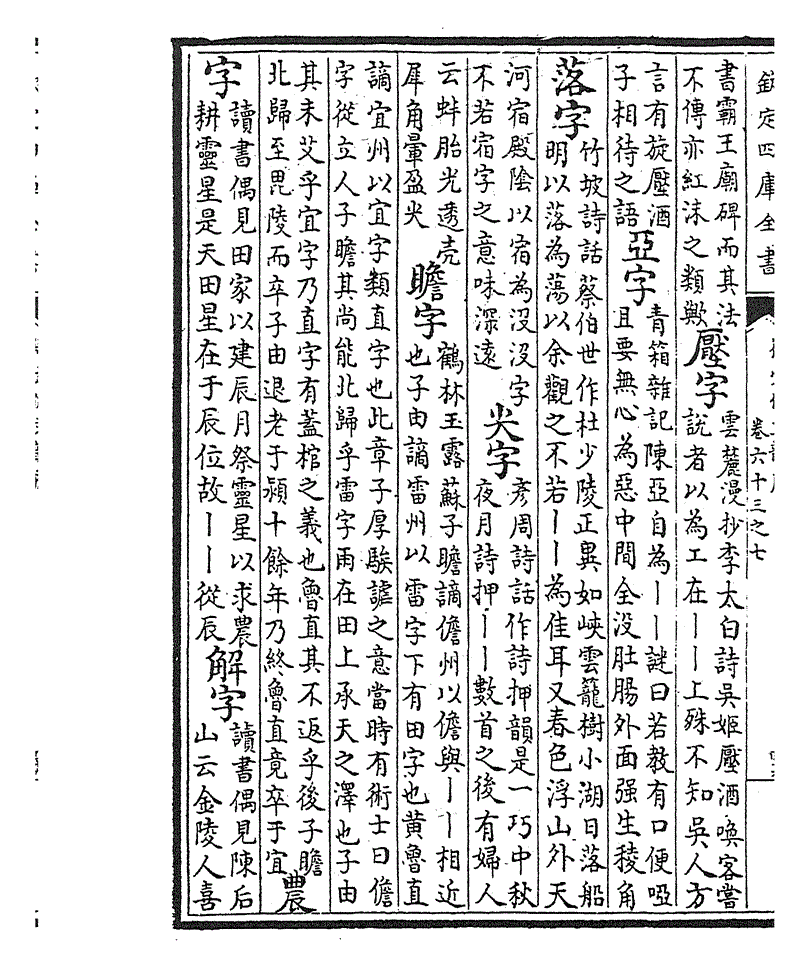 欽定四庫全書
卷六十三之七
書霸王廟碑而其法
不傳亦紅沫之類歟
壓字
雲麓漫抄李太白詩吳姬壓酒喚客嘗
說者以為工在〡〡上殊不知吳人方
言有旋壓酒
子相待之語
亞字
青箱雜記陳亞自為〡〡謎曰若教有口便啞
且要無心為惡中間全没肚腸外面强生稜角
落字
竹坡詩話蔡伯世作杜少陵正異如峽雲籠樹小湖日落船
明以落為蕩以余觀之不若〡〡為佳耳又春色浮山外天
河宿殿陰以宿為没没字
不若宿字之意味深遠
尖字
彦周詩話作詩押韻是一巧中秋
夜月詩押〡〡數首之後有婦人
云蚌胎光透壳
犀角暈盈尖
瞻字
鶴林玉露蘇子瞻謫儋州以儋與〡〡相近
也子由謫雷州以雷字下有田字也黄魯直
謫宜州以宜字類直字也此章子厚騃謔之意當時有術士曰儋
字從立人子瞻其尚能北歸乎雷字雨在田上承天之澤也子由
其未艾乎宜字乃直字有蓋棺之義也魯直其不返乎後子瞻
北歸至毘陵而卒子由退老于潁十餘年乃終魯直竟卒于宜
農
字
讀書偶見田家以建辰月祭靈星以求農
耕靈星是天田星在于辰位故〡〡從辰
解字
讀書偶見陳后
山云金陵人喜